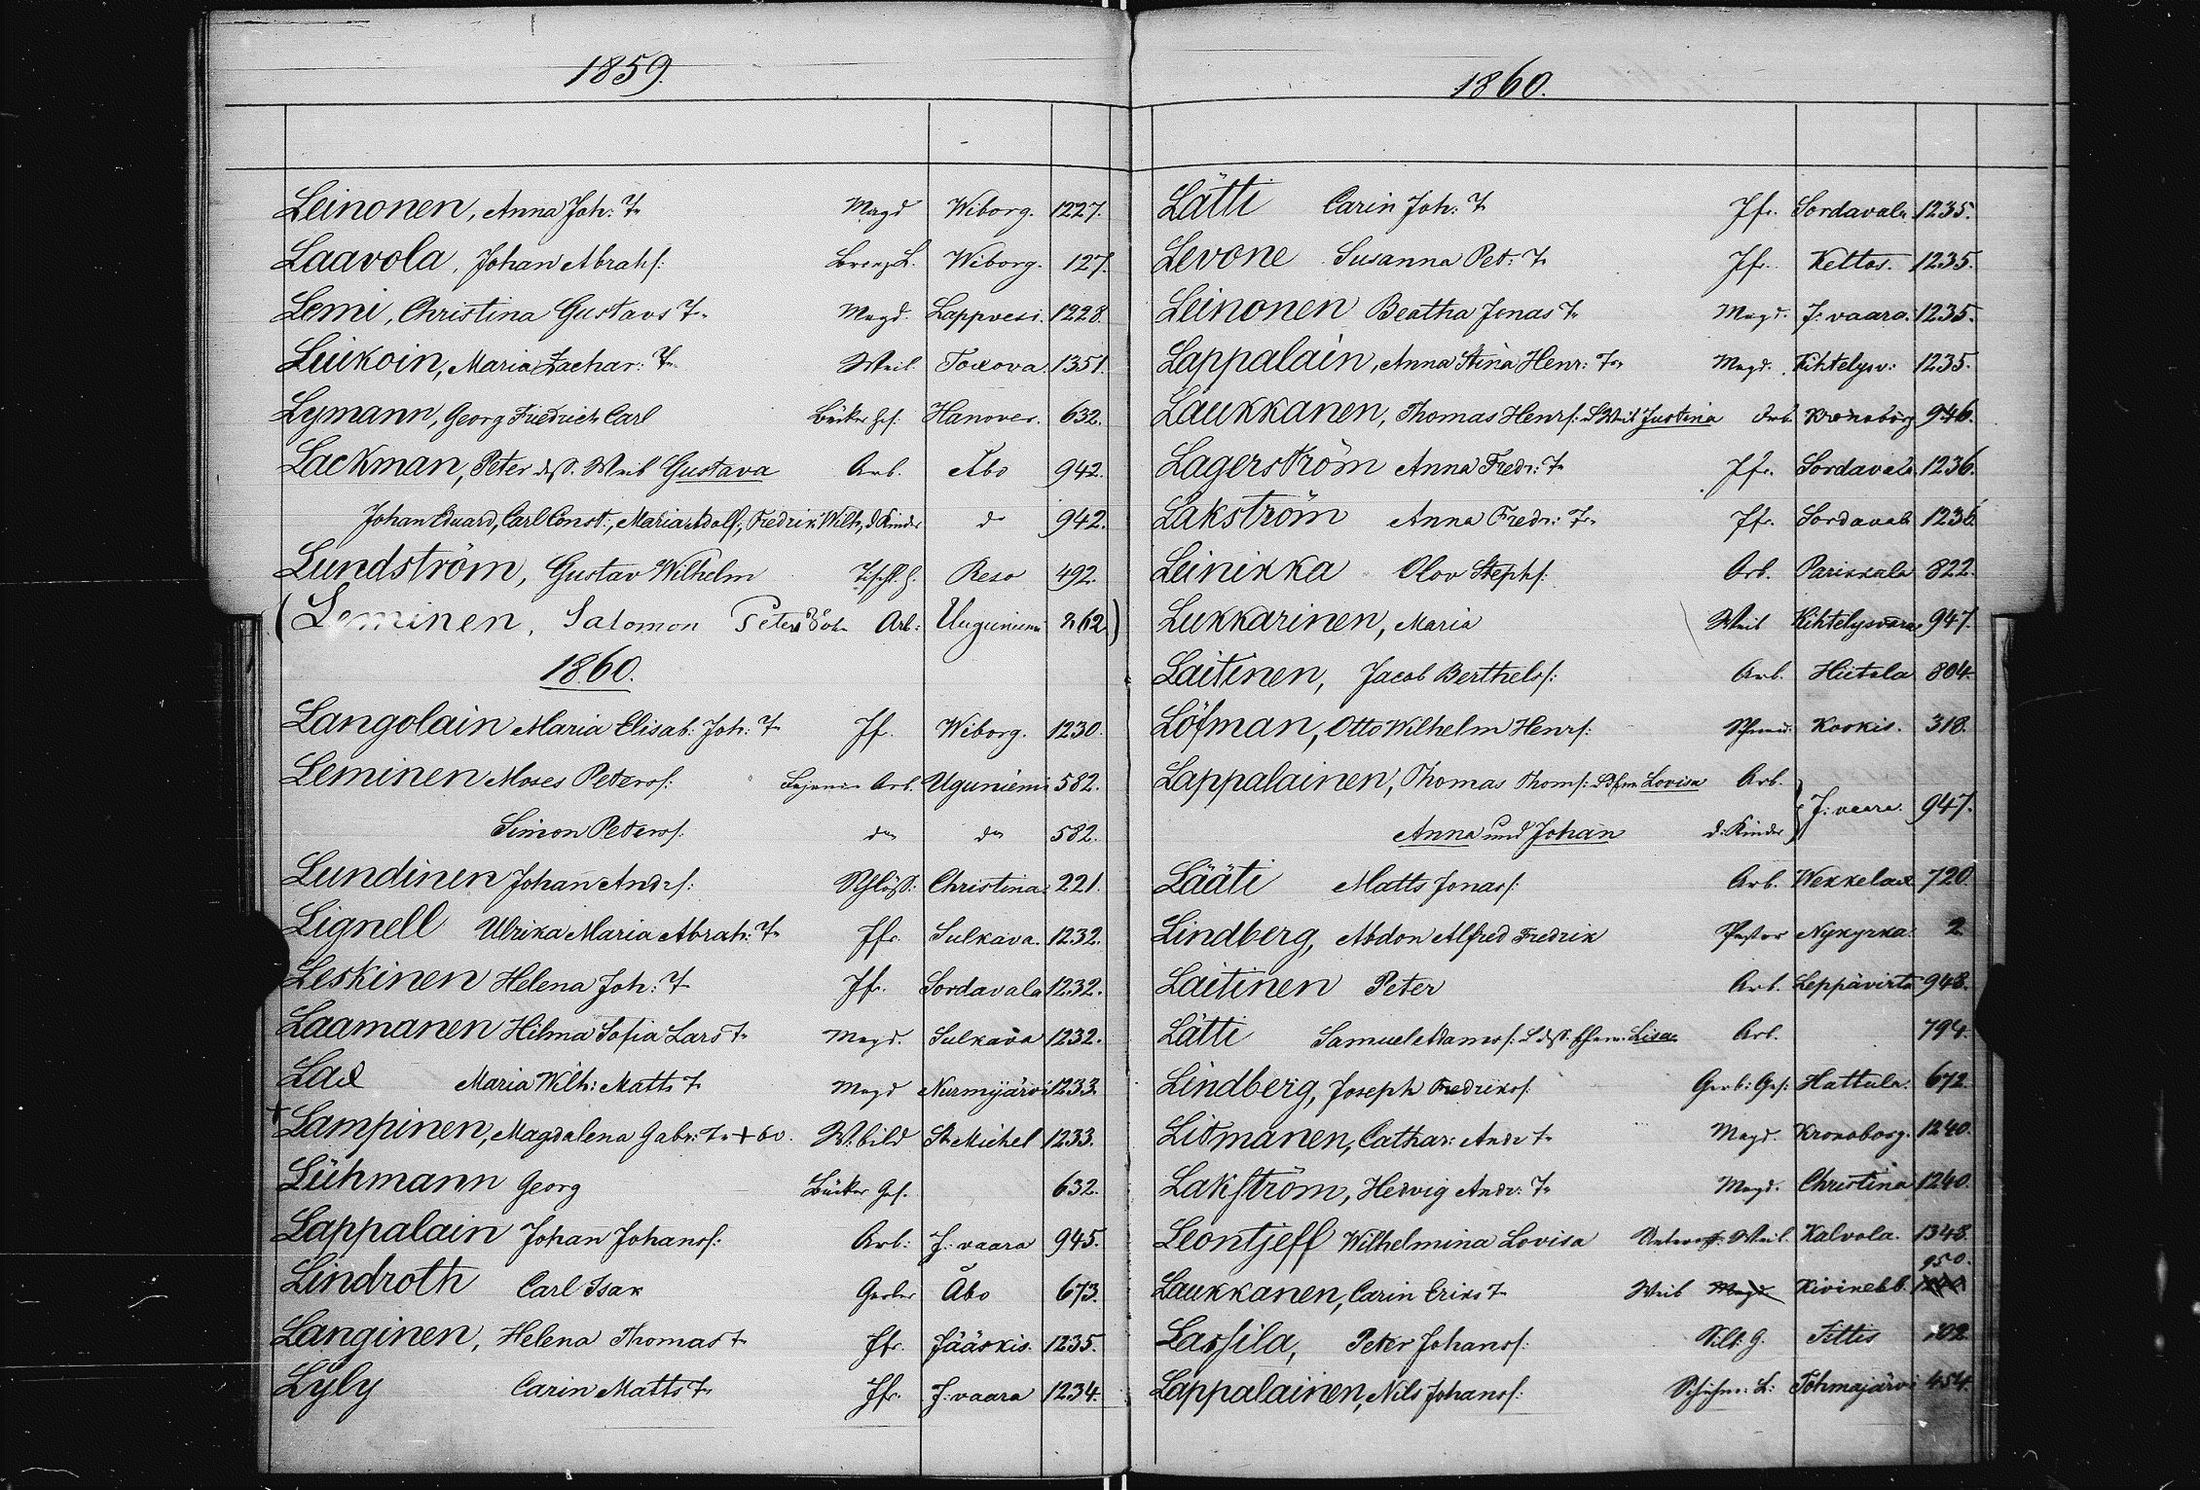 1859.
Leinonen, Anna Joh: T. Magd Wiborg. 1227.
Laavola, Johan Abrahs: L. Wiborg. 127.
Lemi, Christina Gustavs T. Magd. Lappvesi. 1228.
Luikoin, Maria Zachar: T. Weib. Toxova. 1351.
Lymann, Georg Friedrich Carl Bäcker Ges. Hanover. 632.
Lackman, Peter dess. Weib Gustava Arb. Åbo 942.
Johan Eduard, Carl Const:, Maria Adolf;, Fredrik Wilh, d Kinder do 942.
Lundström, Gustav Wilhelm Tischl. G. Reso 492.
(Leminen, Salomon Peters Sohn Arb: Uguniemi 262)
1860.
Langolain Maria Elisab: Joh: T. Jf. Wiborg. 1230.
Leminen Moses Peters: Arb. Uguniemi 582.
Simon Peters: do do 582.
Lundinen Johan Andrs: Schlöss: Christina 221.
Lignell Ulrika Maria Abrah: T. Jfr. Sulkava. 1232.
Leskinen Helena Joh: T. Jfr. Sordavala 1232.
Laamanen Hilma Sofia Lars T. Magd. Sulkava 1232.
Lax Maria Wilh: Matts T. Magd Nurmijärvi 1233.
+ Lampinen, Magdalena Gabr: T. + 60. W:bild St Michel 1233.
Lühmann Georg Bäcker Ges. 632.
Lappalain Johan Johans: Arb: J: vaara 945.
Lindroth Carl Isak Gerber Åbo 673.
Langinen, Helena Thomas T. Jfr. Jääskis. 1235.
Lyly Carin Matts T. Jfr. J: vaara 1234.
1860.
Lätti Carin Joh: T. Jfr. Sordavala 1235.
Levone Susanna Pet: T. Jfr. Keltos. 1235.
Leinonen Beatha Jonas T. Magd. J: vaara. 1235.
Lappalain, Anna Stina Henr: T. Magd. Kihtelysv: 1235.
Laukkanen, Thomas Henrs: d Weib Justina Arb. Kronoborg 946.
Lagerström Anna Fredr: T. Jfr. Sordavala. 1236.
Lakström Anna Fredr: T. Jfr. Sordavala 1236.
Leinikka Olov Stephs: Arb. Parikkala 822.
Lukkarinen, Maria Weib Kihtelysvaara 947.
Laitinen, Jacob Berthels: Arb. Hiitola 804.
Löfman, Otto Wilhelm Henrs: Schmid. Koskis. 318.
Lappalainen, Thomas Thoms: Lovisa Arb.
Anna und Johan d: Kinder J: vaara. 947.
Lääti Matts Jonas: Arb. Wekkelax 720.
Lindberg, Abdon Alfred Fredrik Pastor Nykyrka. 2
Laitinen Peter Arb. Leppävirta 948.
Lätti Samuel Adams: d dess. Ehew. Lisa Arb. 794.
Lindberg, Joseph Fredriks: Gerb: Ges: Hattula. 672.
Litmanen, Cathar: Andr T. Magd. Kronoborg. 1240.
Lakström, Hedvig Andr: T. Magd. Christina 1240.
Leontjeff Wilhelmina Lovisa Unteroff: Weib. Kalvola. 1348.
950.
Laukkanen, Carin Eriks T. Weib Magd Kivinebb. 1240
Lassila, Peter Johans: Silb: G. Tittis 102
Lappalainen, Nils Johans: Schuhm: L: Tohmajärvi 454.